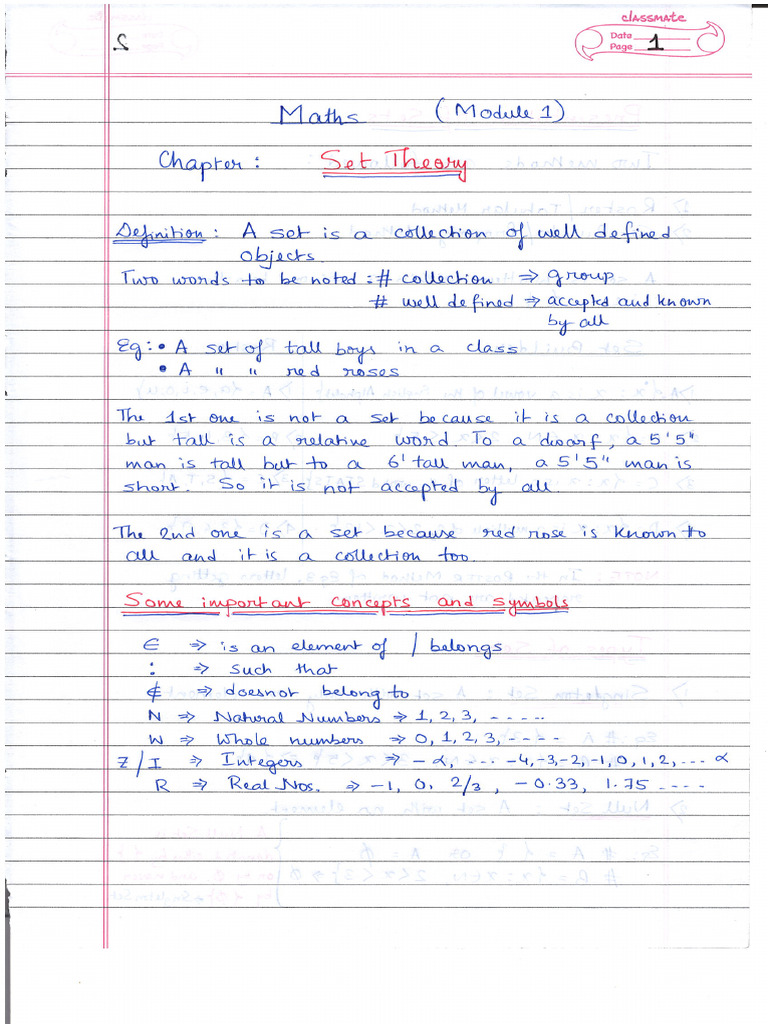 classmate
Date
Page 1
Maths (Module 1)
Chapter: Set Theory
Definition: A set is a collection of well defined
objects.
Two words to be noted: # collection ⇒ group
# well defined ⇒ accepted and known
by all
Eg: • A set of tall boys in a class
• A " " red roses
The 1st one is not a set because it is a collection
but tall is a relative word. To a dwarf, a 5'5"
man is tall but to a 6' tall man, a 5'5" man is
short. So it is not accepted by all.
The 2nd one is a set because red rose is known to
all and it is a collection too.
Some important concepts and symbols
∈ ⇒ is an element of / belongs
: ⇒ such that
∉ ⇒ doesnot belong to
N ⇒ Natural Numbers ⇒ 1, 2, 3, -----
W ⇒ Whole numbers ⇒ 0, 1, 2, 3, -----
Z/I ⇒ Integers ⇒ -α, --- -4, -3, -2, -1, 0, 1, 2, ... α
R ⇒ Real Nos. ⇒ -1, 0, 2/3, -0.33, 1.75 ----